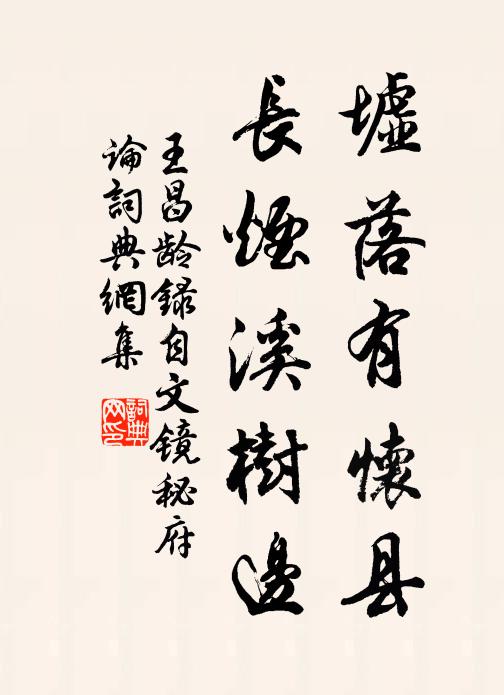 墟落有懷县
長煙溪樹邊
王昌龄録自文镜秘府
論詞典網集
詞典
网印